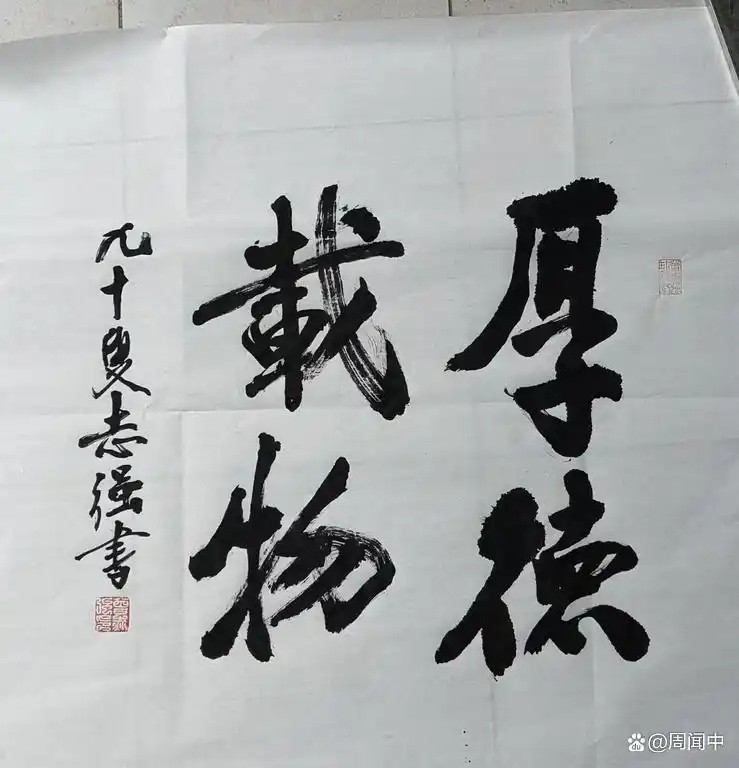 厚德
載物
九十叟志强书
@周闻中